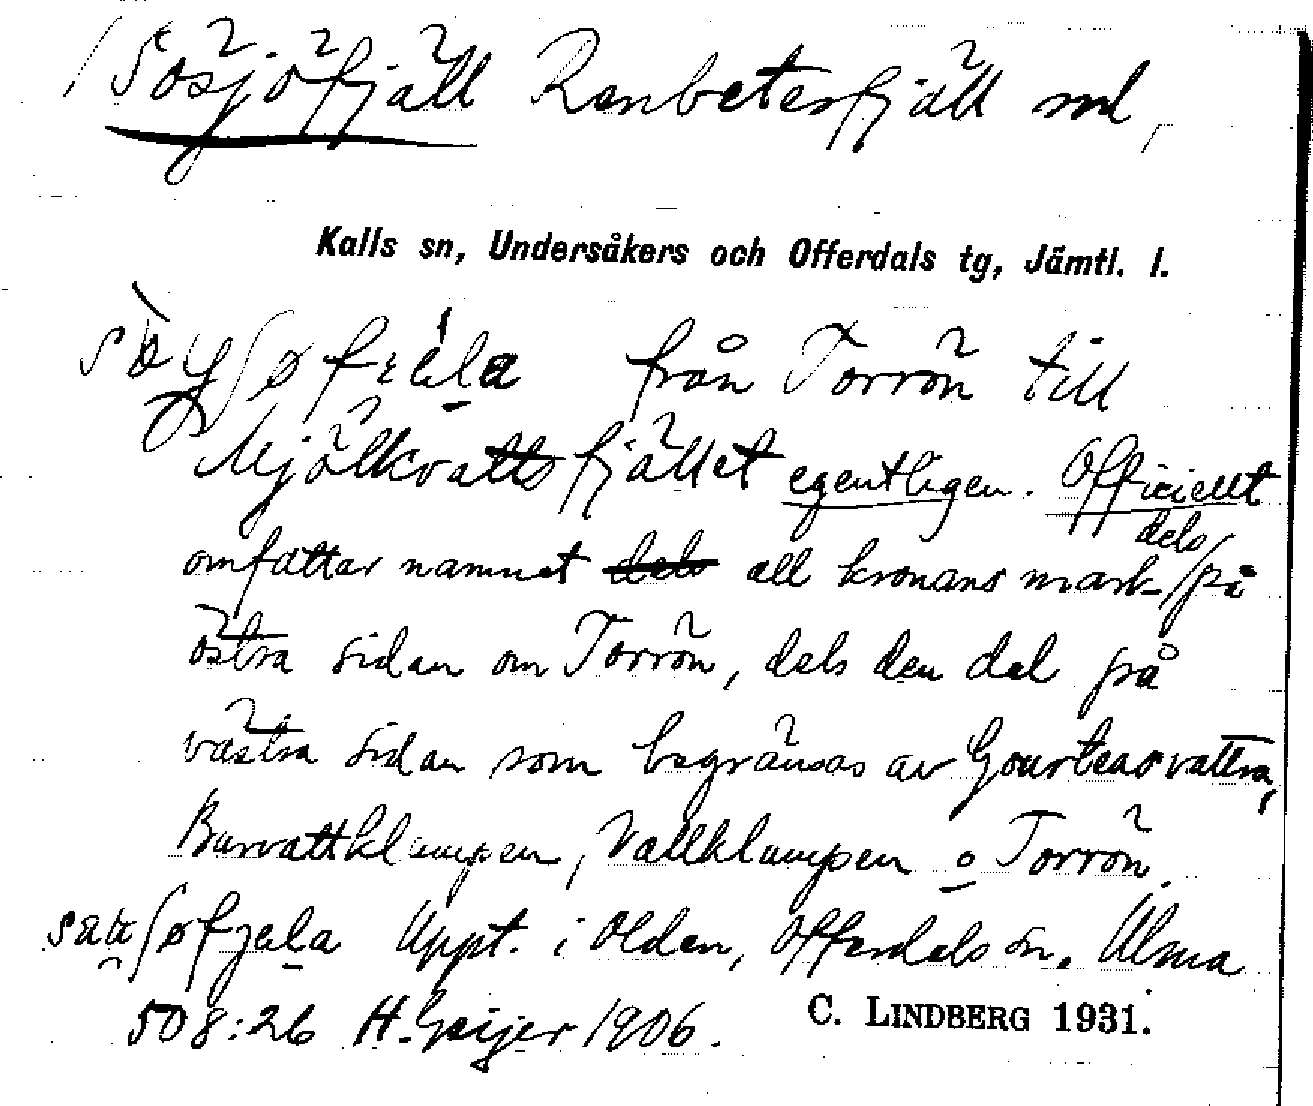 Sösjöfjäll Renbetesfjäll
Kalls sn, Undersåkers och Offerdals tg, Jämtl. l.
från Torrön till
Mjölkvattsfjället egentligen. Officiellt
omfattar namnet dels all kronans mark dels på
östra sidan om Torrön, dels den del på
västra sidan som begränsas av Gourteasvattna,
Burvattklumpen, Vallklumpen o Torrön.
Uppt. i Olden, Offerdals sn. Ulma
508:26 H. Geijer 1906. C. LINDBERG 1931.